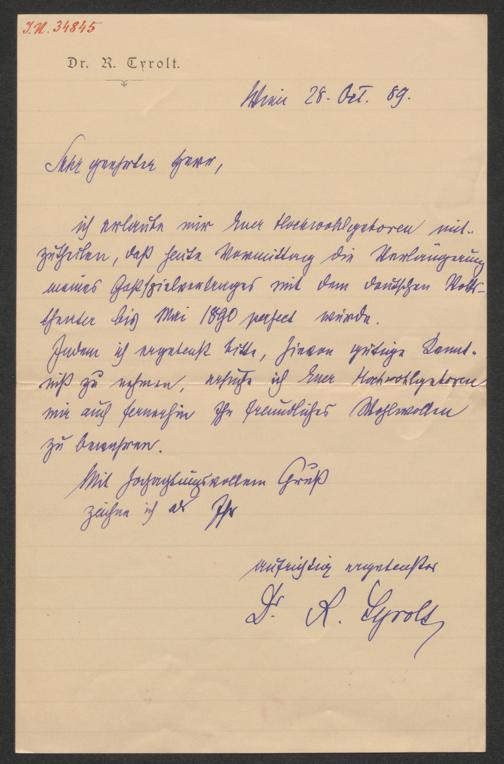 J.N. 34845
Dr. R. Tyrolt.
Wien 28. Oct. 89.
Sehr geehrter Herr,
ich erlaube mir Euer Hochwohlgeboren mit-
zutheilen, daß heute Vormittag die Verlängerung
meines Gastspielvertrages mit dem deutschen Volks-
theater bis Mai 1890 perfect wurde.
Indem ich ergebenst bitte, hievon gütige Kennt-
niß zu nehmen, ersuche ich Euer Hochwohlgeboren
mir auch fernerhin Ihr freundliches Wohlwollen
zu bewahren.
Mit hochachtungsvollem Gruß
zeichne ich als Ihr
aufrichtig ergebenster
Dr. R. Tyrolt